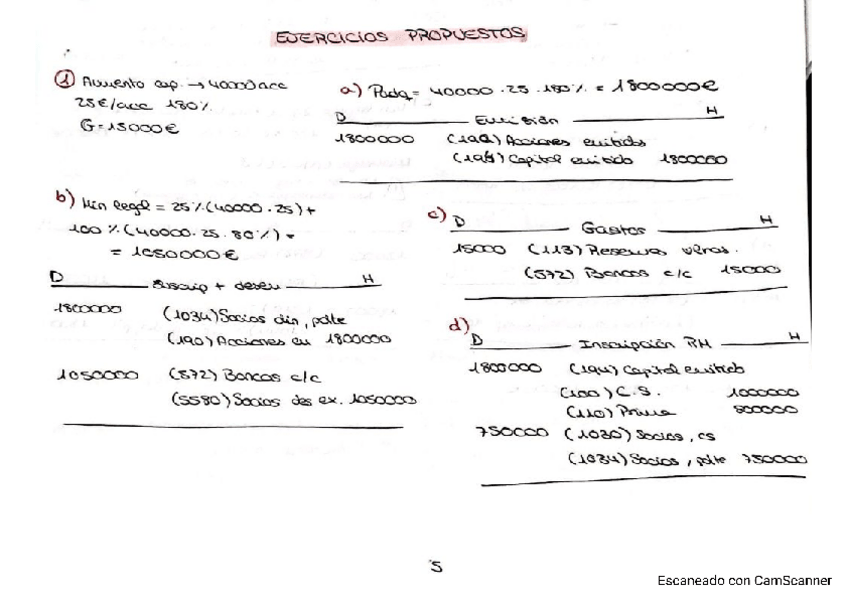 EJERCICIOS PROPUESTOS
① Aumento cap. → 40000 acc
25€/acc 180%
G = 15000€
a) Padq = 40000 · 25 · 180% = 1800000€
D Emisión H
1800000 (190) Acciones emitidas
(194) Capital emitido 1800000
b) Min legal = 25% (40000 · 25) +
100% (40000 · 25 · 80%) =
= 1050000€
D Suscrip + desem H
1800000 (1034) Socios din, pdte
(190) Acciones em 1800000
1050000 (572) Bancos c/c
(5580) Socios des ex. 1050000
c) D Gastos H
15000 (113) Reservas vtros.
(572) Bancos c/c 15000
d) D Inscripción RM H
1800000 (194) Capital emitido
(100) C.S. 1000000
(110) Prima 800000
750000 (1030) Socios, cs
(1034) Socios, pdte 750000
5
Escaneado con CamScanner